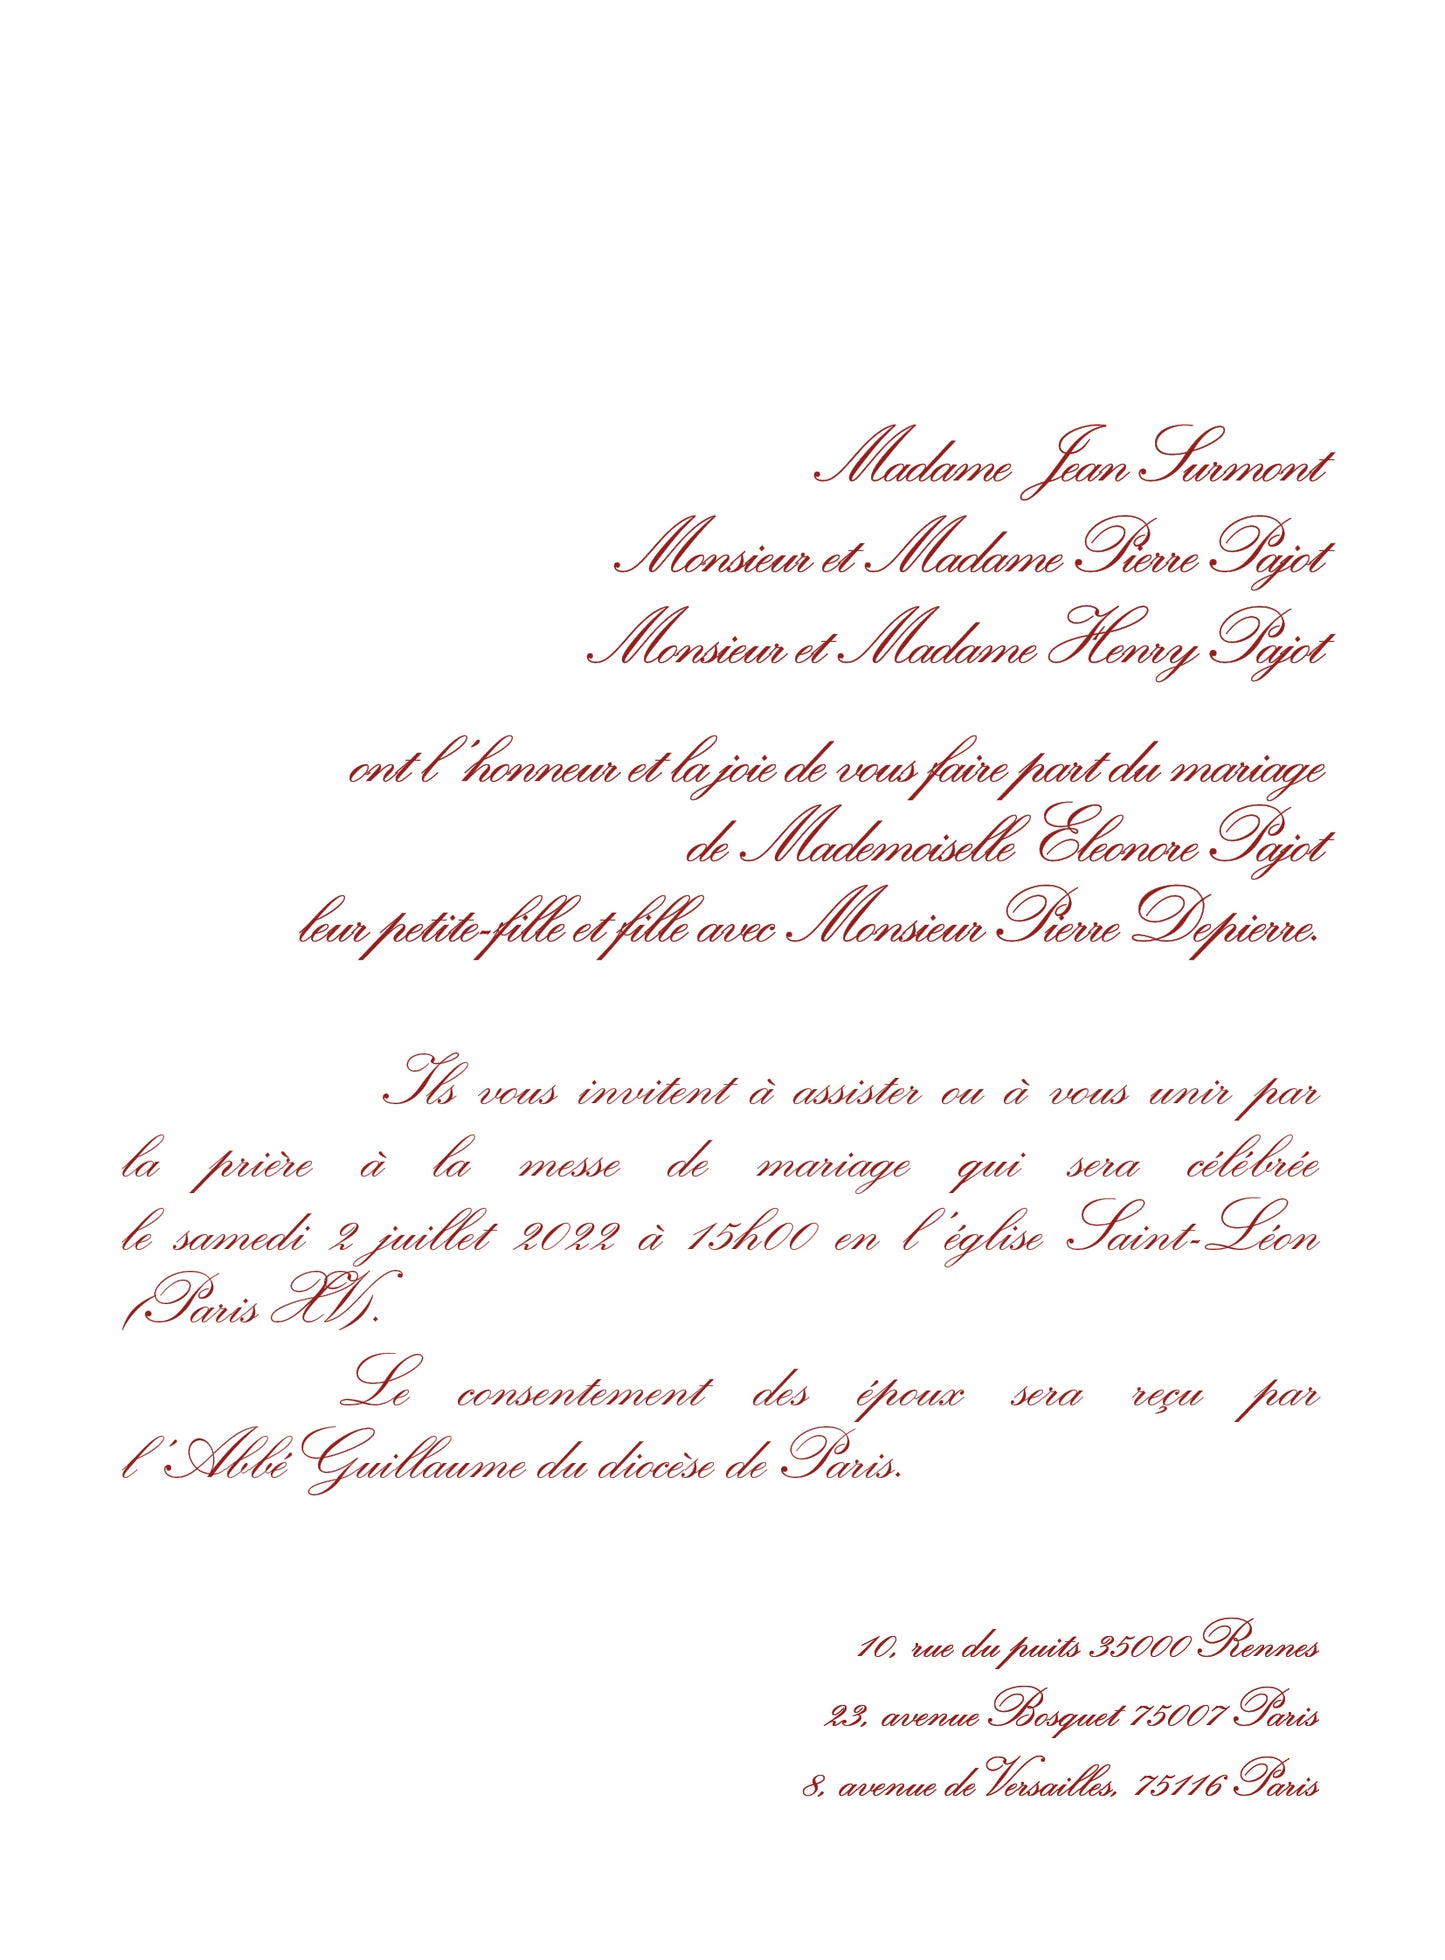 Madame Jean Surmont
Monsieur et Madame Pierre Pajot
Monsieur et Madame Henry Pajot
ont l'honneur et la joie de vous faire part du mariage
de Mademoiselle Eleonore Pajot
leur petite-fille et fille avec Monsieur Pierre Depierre.
Ils vous invitent à assister ou à vous unir par
la prière à la messe de mariage qui sera célébrée
le samedi 2 juillet 2022 à 15h00 en l'église Saint-Léon
(Paris XV).
Le consentement des époux sera reçu par
l'Abbé Guillaume du diocèse de Paris.
10, rue du puits 35000 Rennes
23, avenue Bosquet 75007 Paris
8, avenue de Versailles, 75116 Paris